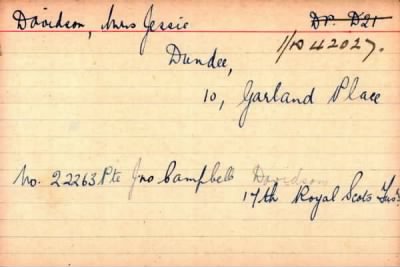 Davidson, Mrs Jessie
Dr. D21
1/DR 42027.
Dundee,
10, Garland Place
No. 22263 Pte Jno Campbell Davidson
17th Royal Scots Fus.